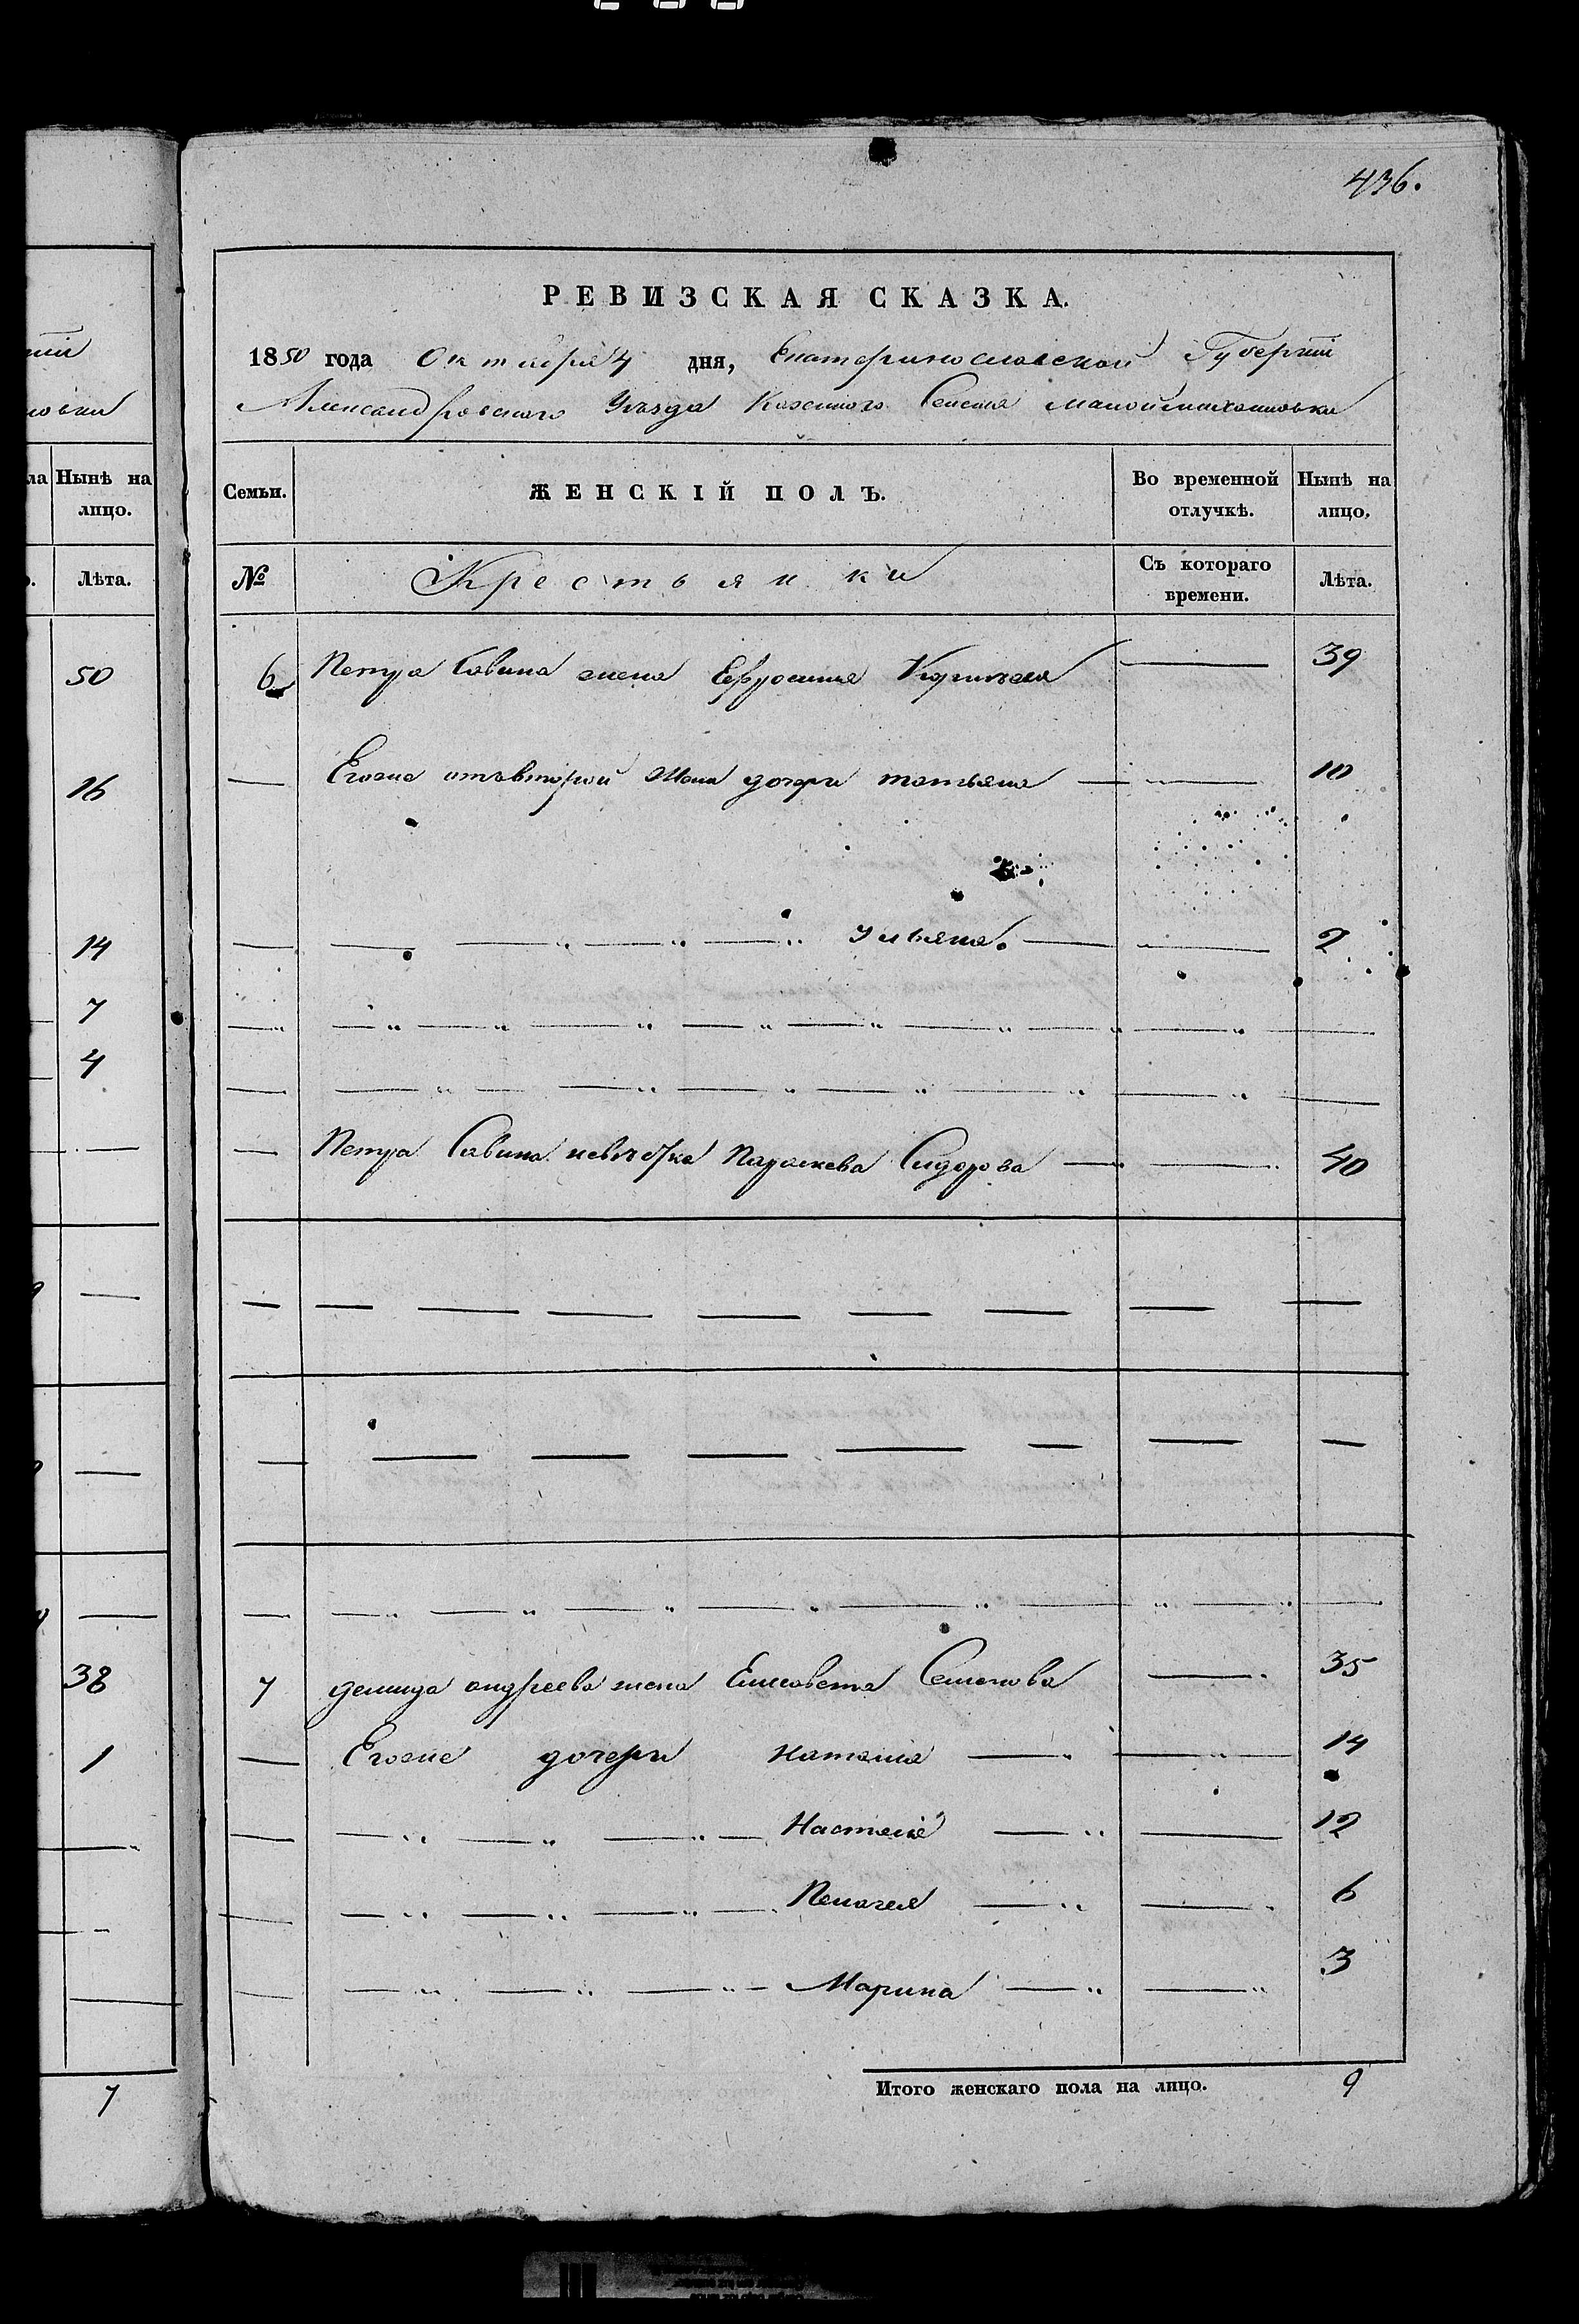 436.
РЕВИЗСКАЯ СКАЗКА.
1850 года Октября 4 дня, Екатеринославской Губернии
Александровского Уезда Казенного Селения малой михайловки
Семьи. ЖЕНСКІЙ ПОЛЪ. Во временной отлучкѣ. Нынѣ на лицо.
№ Крестьянки Съ котораго времени. Лѣта.
6 Петра Савина жена Ефросиния 39
Егоже отъ второй жены дочери татьяна 10
Ульяна 2
Петра Савина невѣстка Параскева Сидорова 40
7 демида андреева жена Елисавета Семенова 35
Егоже дочери наталия 14
Настасія 12
Пелагея 6
Марина 3
Итого женскаго пола на лицо. 9
ла Нынѣ на лицо.
Лѣта.
50
16
14
7
4
38
1
7